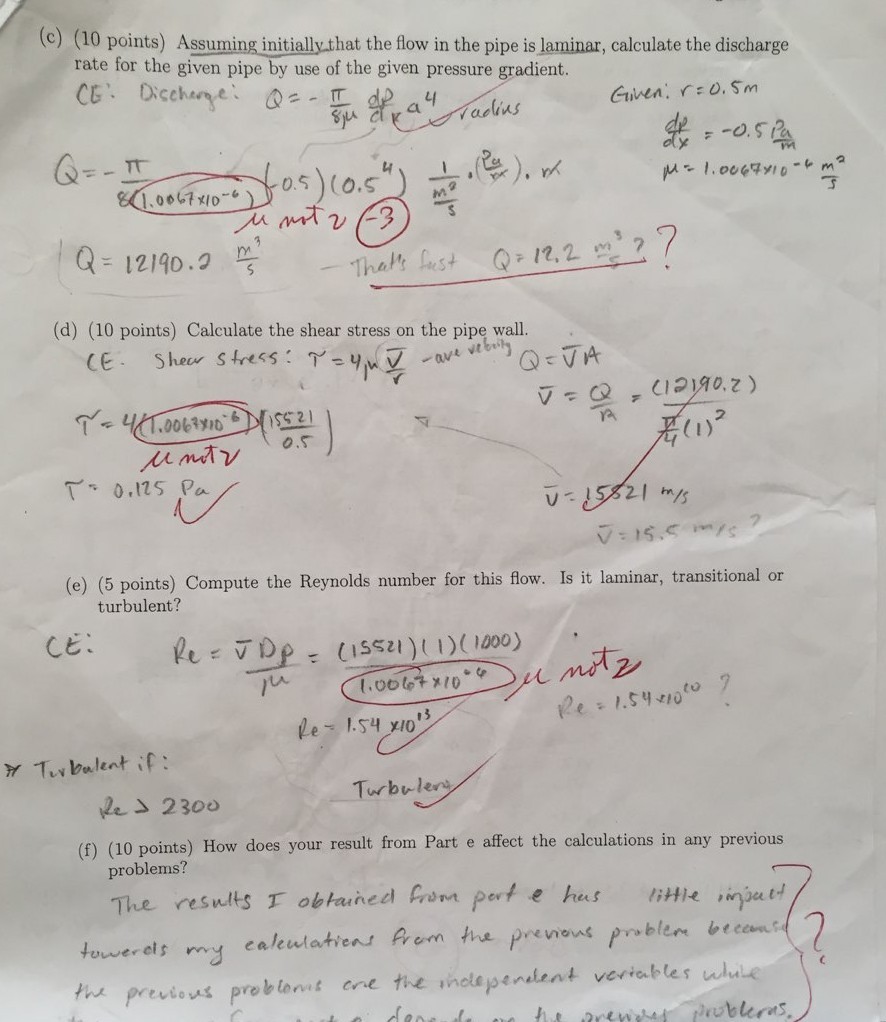 (c) (10 points) Assuming initially that the flow in the pipe is laminar, calculate the discharge
rate for the given pipe by use of the given pressure gradient.
CE: Discharge: Q = - π/8μ dp/dx a⁴ radius
Given: r = 0.5m
dp/dx = -0.5 Pa/m
μ = 1.0067×10⁻⁶ m²/s
Q = - π/8(1.0067×10⁻⁶) (-0.5)(0.5⁴) 1/(m²/s) · (Pa/m) · m
μ not ν -3
Q = 12190.2 m³/s - That's fast Q = 12.2 m³/s ? ?
(d) (10 points) Calculate the shear stress on the pipe wall.
CE. Shear stress: τ = 4μ V̄/r - ave velocity Q = V̄A
V̄ = Q/A = (12190.2)/(π/4 (1)²)
τ = 4(1.0067×10⁻⁶)(15521/0.5)
μ not ν
τ = 0.125 Pa
V̄ = 15521 m/s
V̄ = 15.5 m/s ?
(e) (5 points) Compute the Reynolds number for this flow. Is it laminar, transitional or
turbulent?
CE: Re = V̄Dρ/μ = (15521)(1)(1000)/1.0067×10⁻⁶
μ not ν
Re = 1.54 ×10¹³
Re = 1.54×10¹⁰ ?
Turbulent if:
Re > 2300
Turbulent
(f) (10 points) How does your result from Part e affect the calculations in any previous
problems?
The results I obtained from part e has little impact
towards my calculations from the previous problem because
?
the previous problems are the independent variables while
depends on the previous problems.